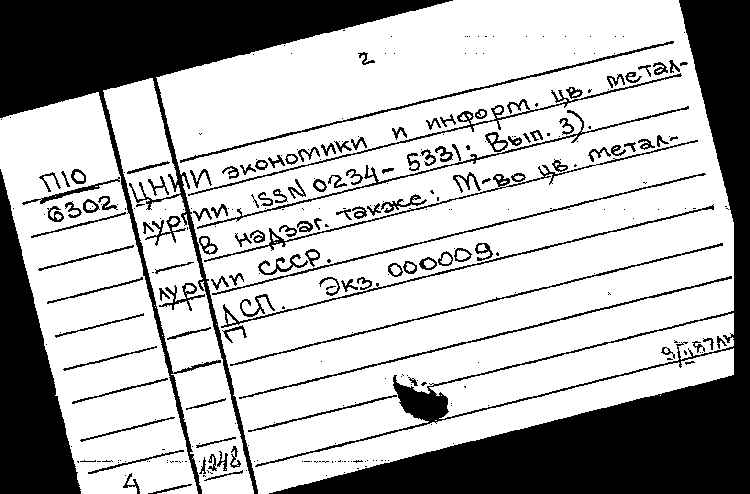 2
П10
6302
ЦНИИ экономики и информ. цв. метал-
лургии, ISSN 0234-5331; Вып. 3).
В надзаг. также: М-во цв. метал-
лургии СССР.
ДСП. Экз. 000009.
4
1248